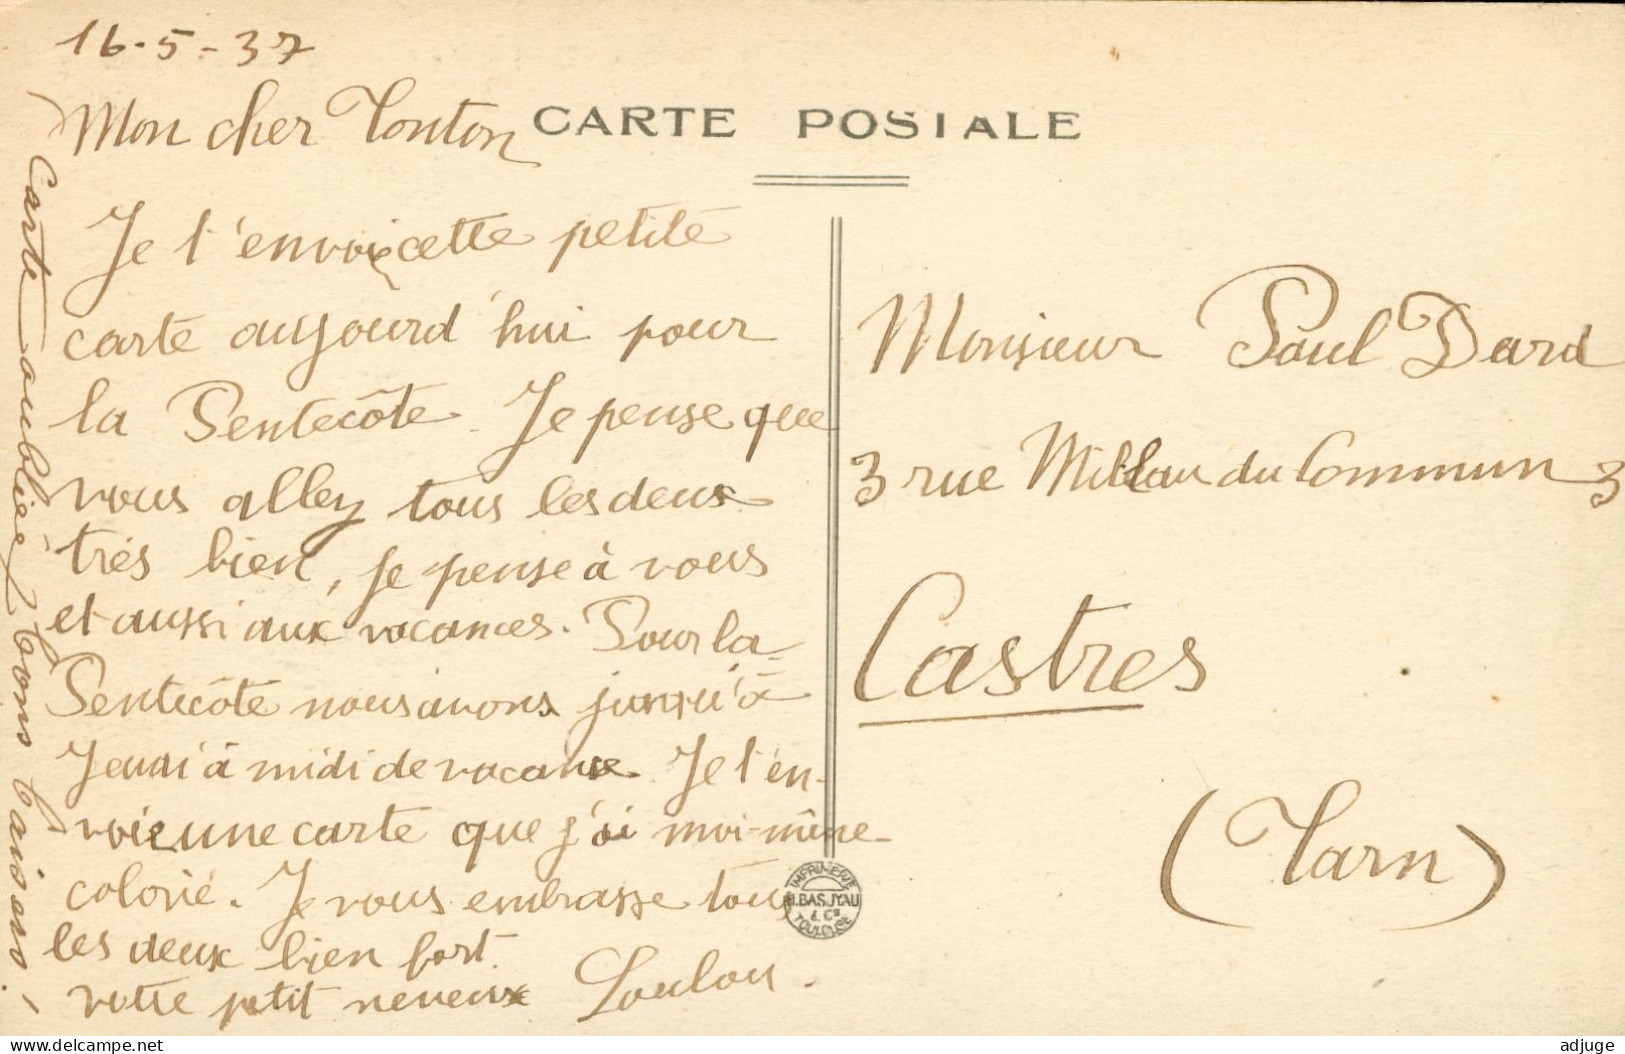 16-5-37
Mon cher Tonton
CARTE POSTALE
Je t'envoie cette petite
carte aujourd'hui pour
la Pentecôte. Je pense que
vous allez tous les deux
très bien, je pense à vous
et aussi aux vacances. Pour la
Pentecôte nous avons jusqu'à
Jeudi à midi de vacance. Je t'en-
voie une carte que j'ai moi-même
colorié. Je vous embrasse tous
les deux bien fort.
votre petit neveux Loulou.
carte oubliée, bons baisers !
Monsieur Paul Dard
3 rue Millau du Commun 3
Castres
(Tarn)
IMPRIMERIE
H. BASUYAU
& Cie
TOULOUSE
delcampe.net
adjuge